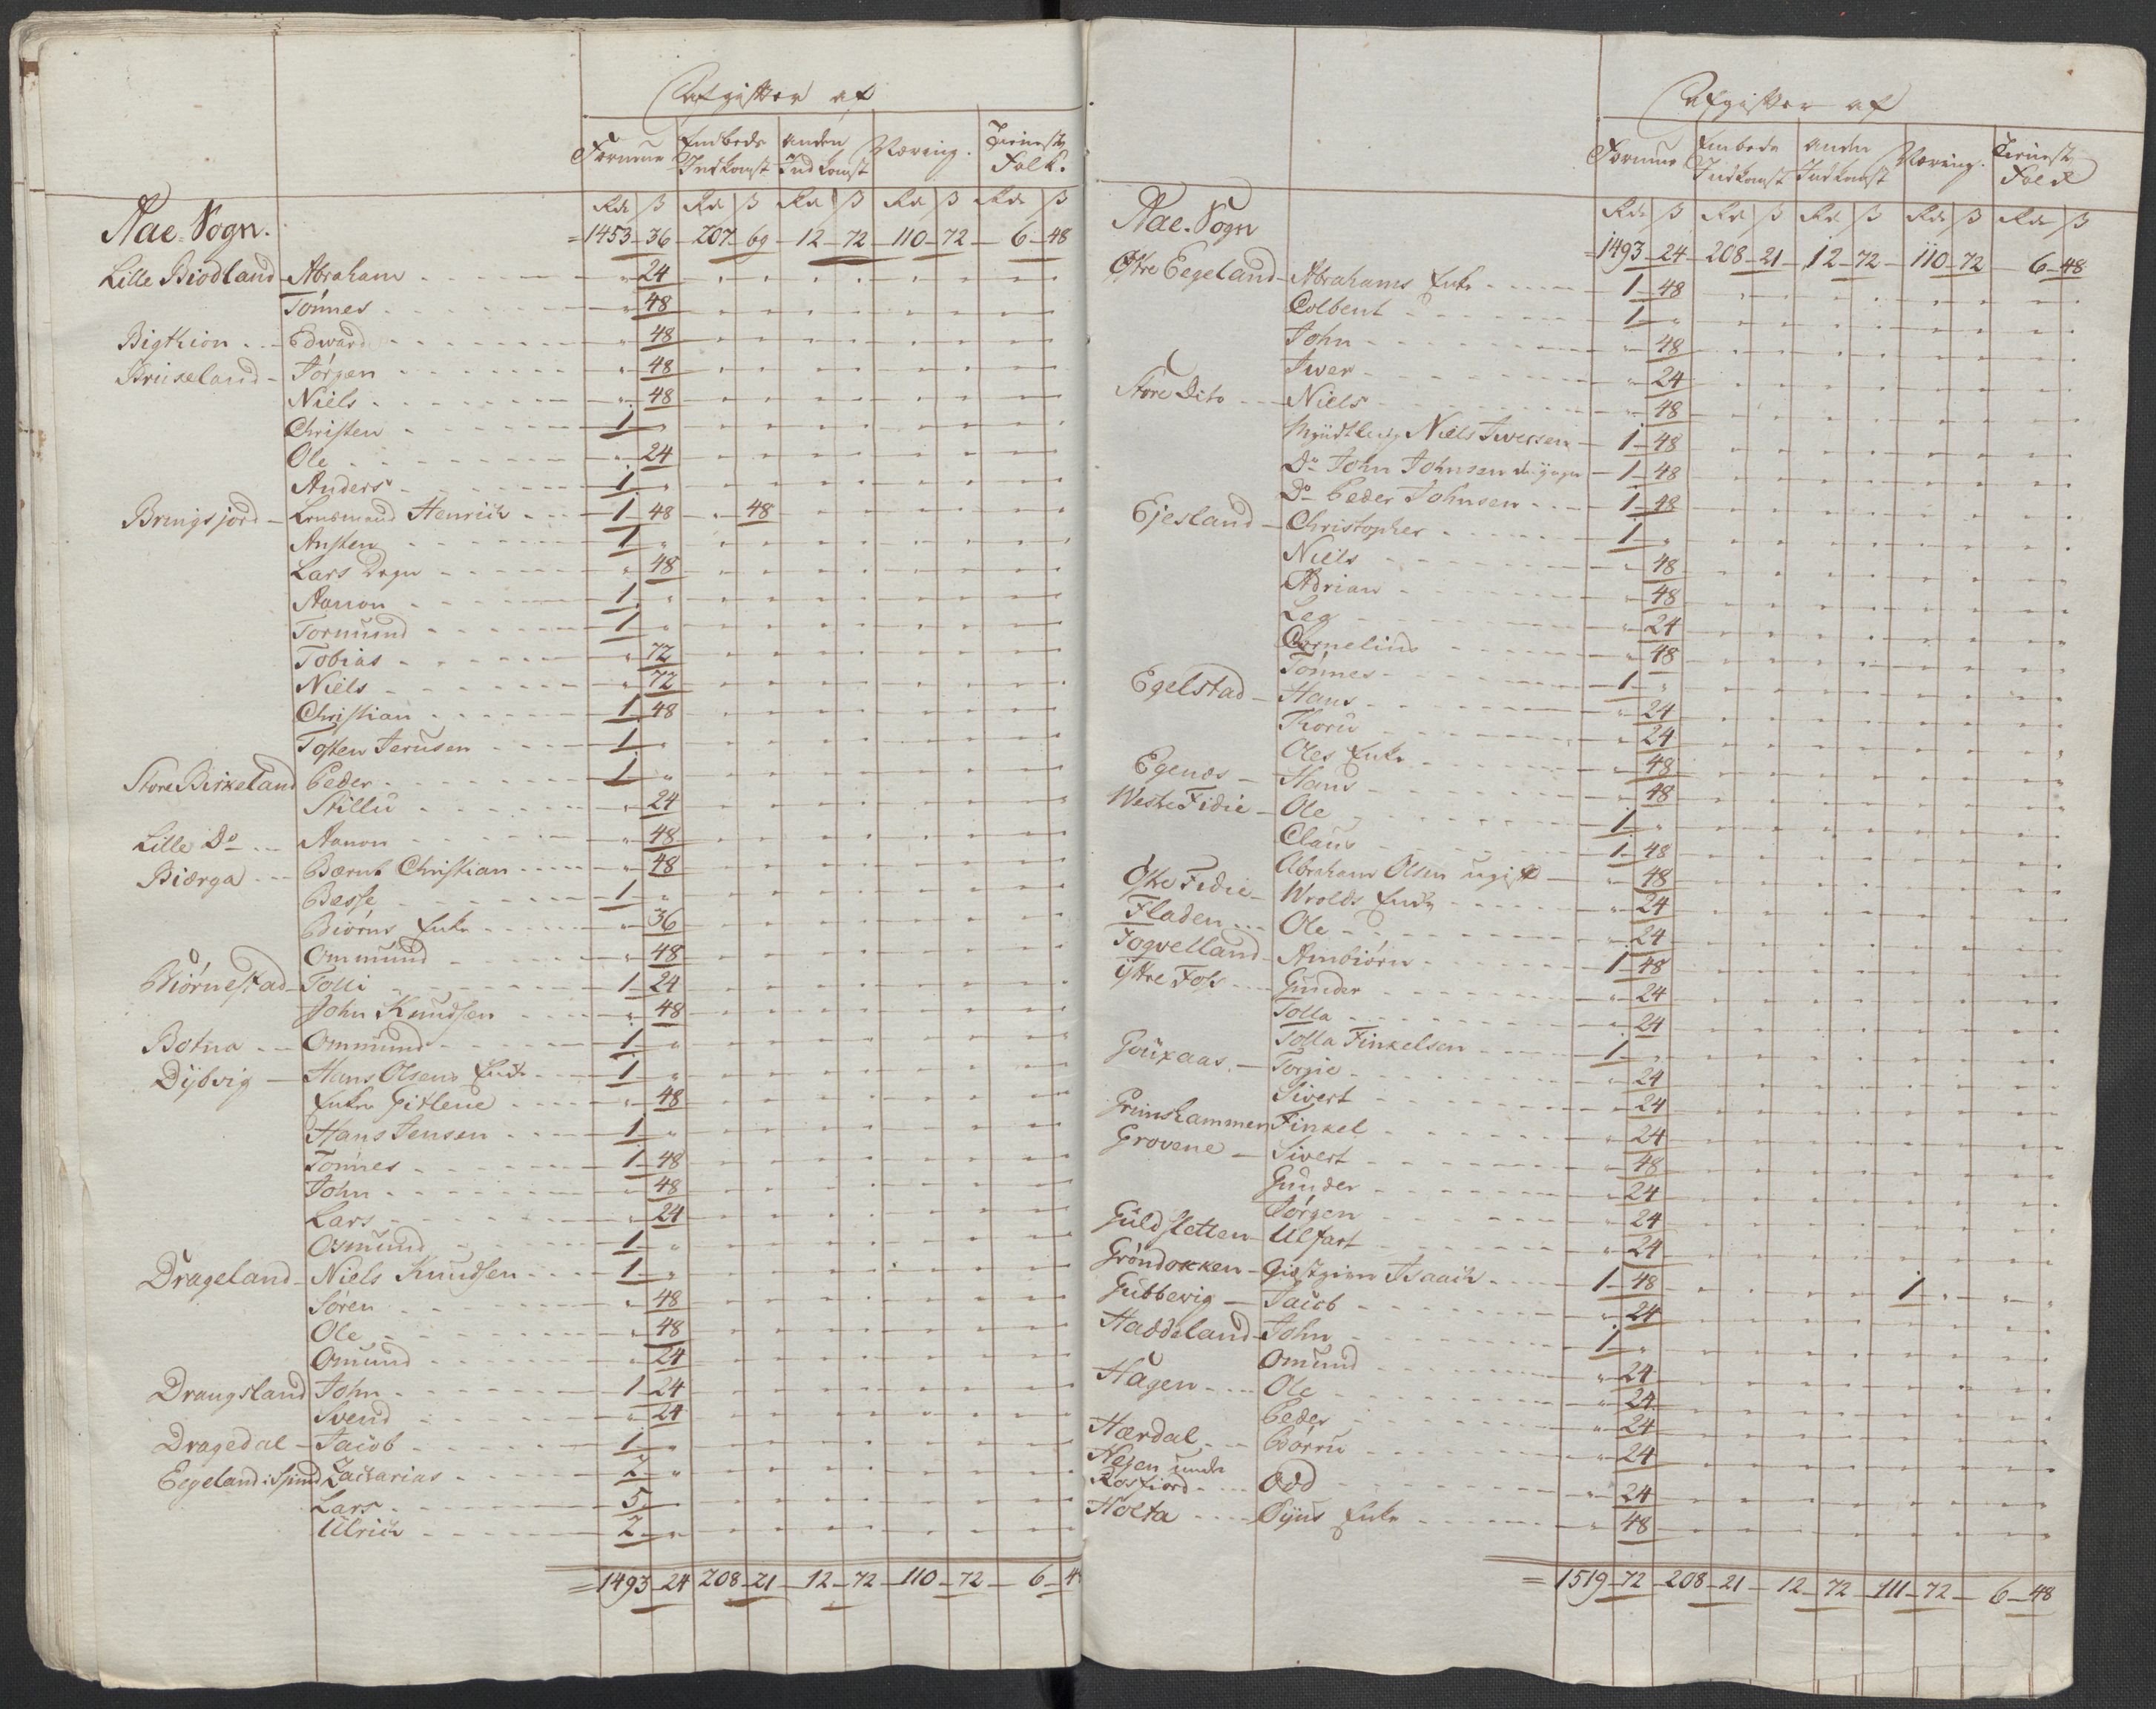 Afgifter af
Formue Embeds Indkomst Anden Indkomst Næring. Tieneste Folk.
Rdr ß Rd ß Rd ß Rd ß Rdr ß
Aae Sogn. = 1453 - 36 - 207 - 69 - 12 - 72 - 110 - 72 - 6 - 48
Lille Biodland Abraham - " 24
Tönnes - " 48
Bigthion - Edward - " 48
Bruseland - Jörgen - " 48
Niels - " 48
Christen - 1 - "
Ole - " 24
Anders - 1 - "
Bringsjord - Lensmand Henrich - 1 - 48 - " 48
Austen - 1 - "
Lars Degn - " 48
Aanon - 1 - "
Tormund - 1 - "
Tobias - " 72
Niels - " 72
Christian - 1 - 48
Tosten Jerusen - 1 - "
Store Birkeland Peder - 1 - "
Stillu - " 24
Lille Do - Aanon - " 48
Biærga - Bærnt Christian - " 48
Besse - 1 - "
Biörns Enke - " 36
Ommund - " 48
Biörnestad - Tolli - 1 - 24
John Knudsen - " 48
Botna - Ommund - 1 - "
Dÿbvig - Hans Olsens Enke - 1 - "
Enken Gitlene - " 48
Hans Jensen - 1 - "
Tönnes - 1 - 48
John - " 48
Lars - " 24
Osmund - 1 - "
Drageland - Niels Knudsen - 1 - "
Sören - " 48
Ole - " 48
Omund - " 24
Draugsland John - 1 - 24
Svend - " 24
Dragedal - Jacob - 1 - "
Eegeland i Spind Zacharias - 2 - "
Lars - 5 - "
Ulrich - 2 - "
= 1493 - 24 208 - 21 - 12 - 72 - 110 - 72 - 6 - 4
Afgifter af
Formue Embeds Indkomst Anden Indkomst Næring. Tieneste Folk
Rdr ß Rd ß Rd ß Rd ß Rdr ß
Aae. Sogn
= 1493 - 24 - 208 - 21 - 12 - 72 - 110 - 72 - 6 - 48
Östre Eegeland - Abrahams Enke - 1 - 48
Colbent - 1 - "
John - " 48
Iwer - " 24
Store Dito - Niels - " 48
Myndtling Niels Iwersen - 1 - 48
Do John Johnsen de yngre - 1 - 48
Do Peder Johnsen - 1 - 48
Ejesland - Christopher - 1 - "
Niels - " 48
Adrian - " 48
Leg - " 24
Cornelius - " 48
Tönnes - 1 - "
Egelstad - Hans - " 24
Thoru - " 24
Oles Enke - " 48
Egenæs - Hans - " 48
Westre Fidie - Ole - 1 - "
Claus - 1 - 48
Abraham Olsen ugift - " 48
Östre Fidie - Wrolds Enke - " 24
Fladen - Ole - " 24
Foqvelland - Arnbiörn - 1 - 48
Ÿttre Foss - Gunder - " 24
Tolla - " 24
Tolla Finkelsen - 1 - "
Gouxaas - Torgie - " 24
Sivert - " 24
Grimshammen Finkel - " 24
Grovene - Sivert - " 48
Gunder - " 24
Jörgen - " 24
Guldsletten - Ulfart - " 24
Gröndokken - Giæstgiver Isaach - 1 - 48 1 - "
Gubbevig - Jacob - " 24
Haddeland - John - 1 - "
Omund - " 24
Hagen - Ole - " 24
Peder - " 24
Hærdal - Börru - " 24
Hegen under
Rosfiord - Odd - " 24
Holta - Gyus Enke - " 48
= 1519 - 72 - 208 - 21 - 12 - 72 - 111 - 72 - 6 - 48